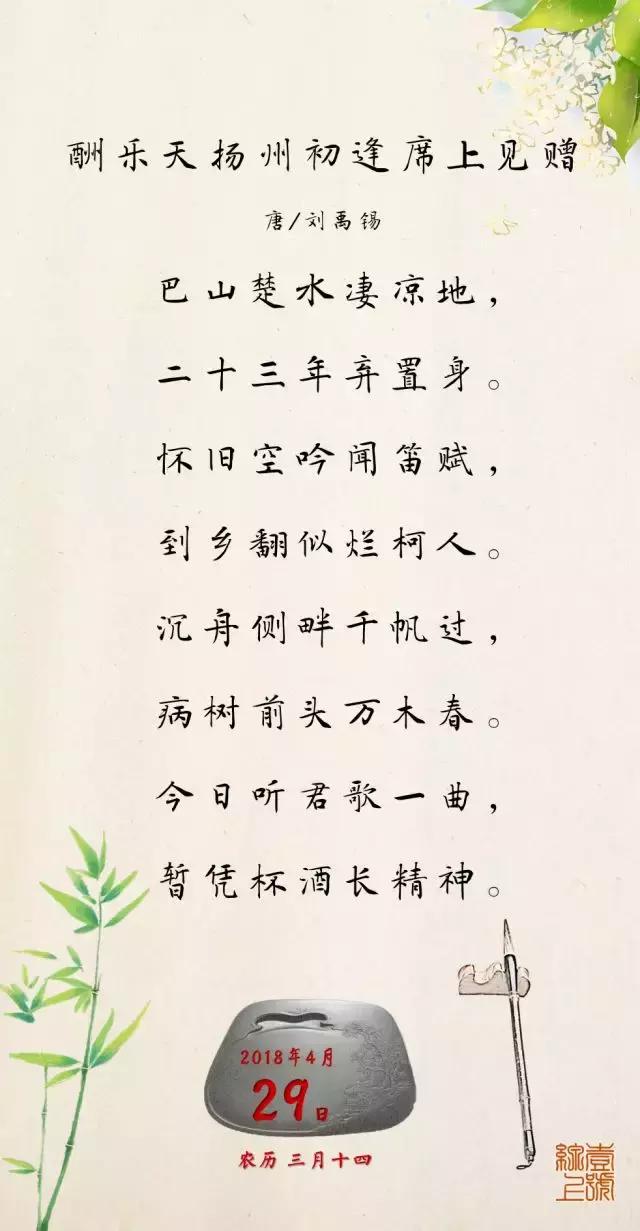 酬乐天扬州初逢席上见赠
唐/刘禹锡
巴山楚水凄凉地，
二十三年弃置身。
怀旧空吟闻笛赋，
到乡翻似烂柯人。
沉舟侧畔千帆过，
病树前头万木春。
今日听君歌一曲，
暂凭杯酒长精神。
2018年4月
29日
农历 三月十四